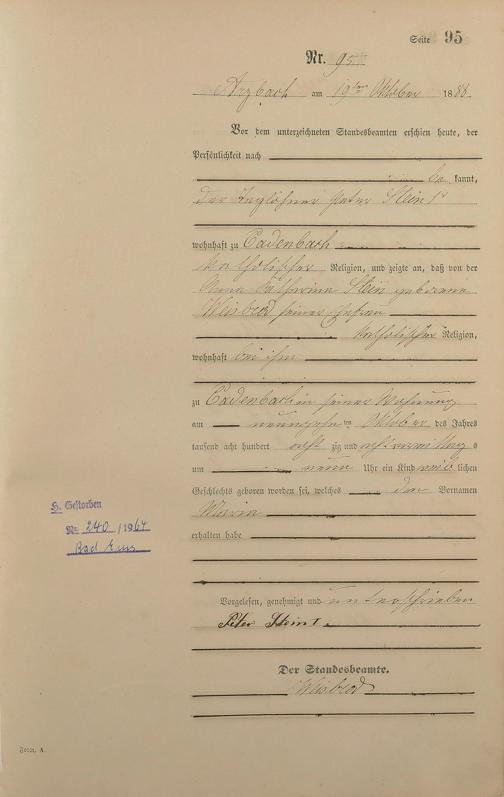 Seite 95
Nr. 95
Arzbach am 19ten Oktober 1888.
Vor dem unterzeichneten Standesbeamten erschien heute, der
Persönlichkeit nach
be kannt,
der Taglöhner Peter Stein 1r
wohnhaft zu Cadenbach
katholischer Religion, und zeigte an, daß von der
Anna Catharina Stein geborene
Weisbrod seiner Ehefrau
katholischer Religion,
wohnhaft bei ihm
zu Cadenbach in seiner Wohnung
am neunzehnten Oktober des Jahres
tausend acht hundert acht zig und acht Vormittag s
um neun Uhr ein Kind weib lichen
Geschlechts geboren worden sei, welches den Vornamen
Maria
erhalten habe
H. Gestorben
Nr. 240/1964
Bad Ems
Vorgelesen, genehmigt und unterschrieben
Peter Stein 1.
Der Standesbeamte.
Weisbrod
Form. A.